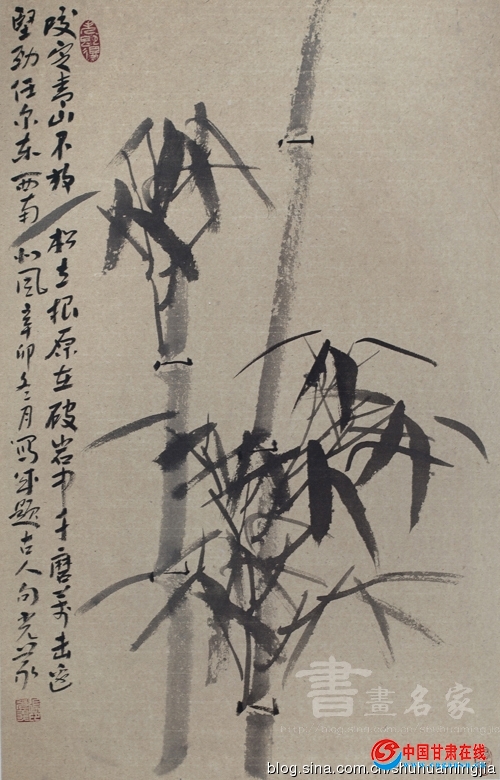 咬定青山不放松立根原在破岩中千磨万击还
坚劲任尔东西南北风辛卯冬二月写题古人句
書畫名家
中国甘肃在线
blog.sina.com.cn/shuhuamingjia